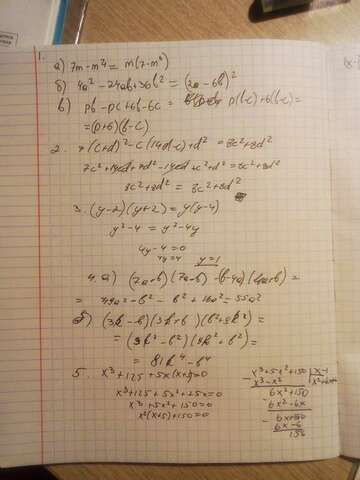 1.
а) 7m-m⁴ = m(7-m³)
б) 4a²-24ab+36b² = (2a-6b)²
в) pb-pc+6b-6c = p(b-c)+6(b-c)=
=(p+6)(b-c)
2. 7(c+d)²-c(14d-c)+d² = 8c²+8d²
7c²+14cd+7d²-14cd+c²+d²=8c²+8d²
8c²+8d² = 8c²+8d²
3. (y-2)(y+2)=y(y-4)
y²-4=y²-4y
4y-4=0
4y=4 y=1
4. а) (7a+b)(7a-b)-(b-4a)(4a+b)=
= 49a²-b²-b²+16a²=55a²
б) (3k-b)(3k+b)(b²+9k²)=
=(9k²-b²)(9k²+b²)=
= 81k⁴-b⁴
5. x³+125+5x(x+5)=0
x³+125+5x²+25x=0
x³+5x²+150=0
x²(x+5)+150=0
x³+5x²+150 x-1
x³-x² x²+6x+
6x²+150
6x²-6x
6x+150
6x-6
156